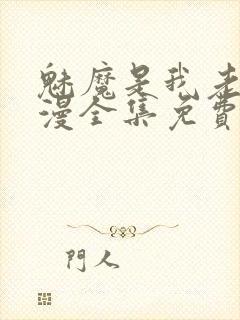 魅魔是我老
漫全集免費
門人